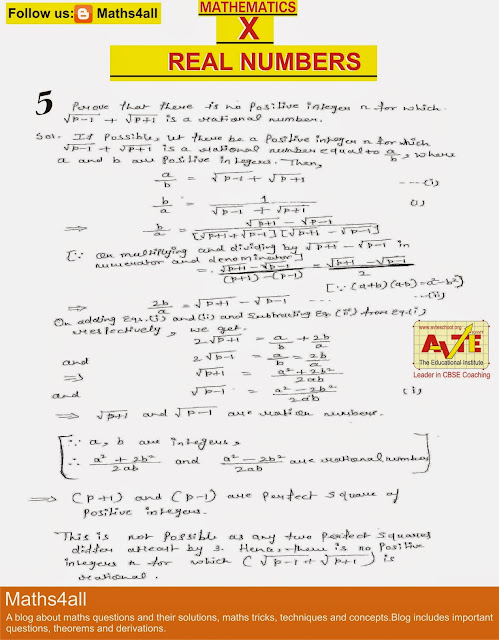 Follow us: Maths4all
MATHEMATICS
X
REAL NUMBERS
5 Perove that there is no Positive integer n for which
√p-1 + √p+1 is a rational number.
Sol. If Possible, let there be a Positive integer n for which
√p-1 + √p+1 is a rational number equal to a/b, where
a and b are Positive integers. Then,
a/b = √p-1 + √p+1 ----(i)
b/a = 1/(√p-1 + √p+1) (i)
⇒ = (√p+1 - √p-1)/([√p+1 + √p-1][√p+1 - √p-1])
[∵ On multiplying and dividing by √p+1 - √p-1 in
numerator and denominator]
= (√p+1 - √p-1)/((p+1) - (p-1)) = (√p+1 - √p-1)/2
[∵ (a+b)(a-b) = a²-b²]
⇒ 2b/a = √p+1 - √p-1 ... ---(ii)
On adding Eqs.(i) and (ii) and Subtracting Eq (ii) from Eq.(i)
respectively, we get.
2√p+1 = a/b + 2b/a
and 2√p-1 = a/b = 2b/a
⇒ √p+1 = (a²+2b²)/2ab
and √p-1 = (a²-2b²)/2ab (i)
⇒ √p+1 and √p-1 are ration numbers.
[∵ a, b are integers,
∴ (a²+2b²)/2ab and (a²-2b²)/2ab are rational number]
⇒ (p+1) and (p-1) are Perfect Square of
Positive integers.
This is not Possible as any two Perfect Squares
differ atleast by 3. Hence there is no Positive
integers n for which (√p-1 + √p+1) is
rational.
www.avteschool.org
AVTE
The Educational Institute
Leader in CBSE Coaching
Maths4all
A blog about maths questions and their solutions, maths tricks, techniques and concepts.Blog includes important
questions, theorems and derivations.